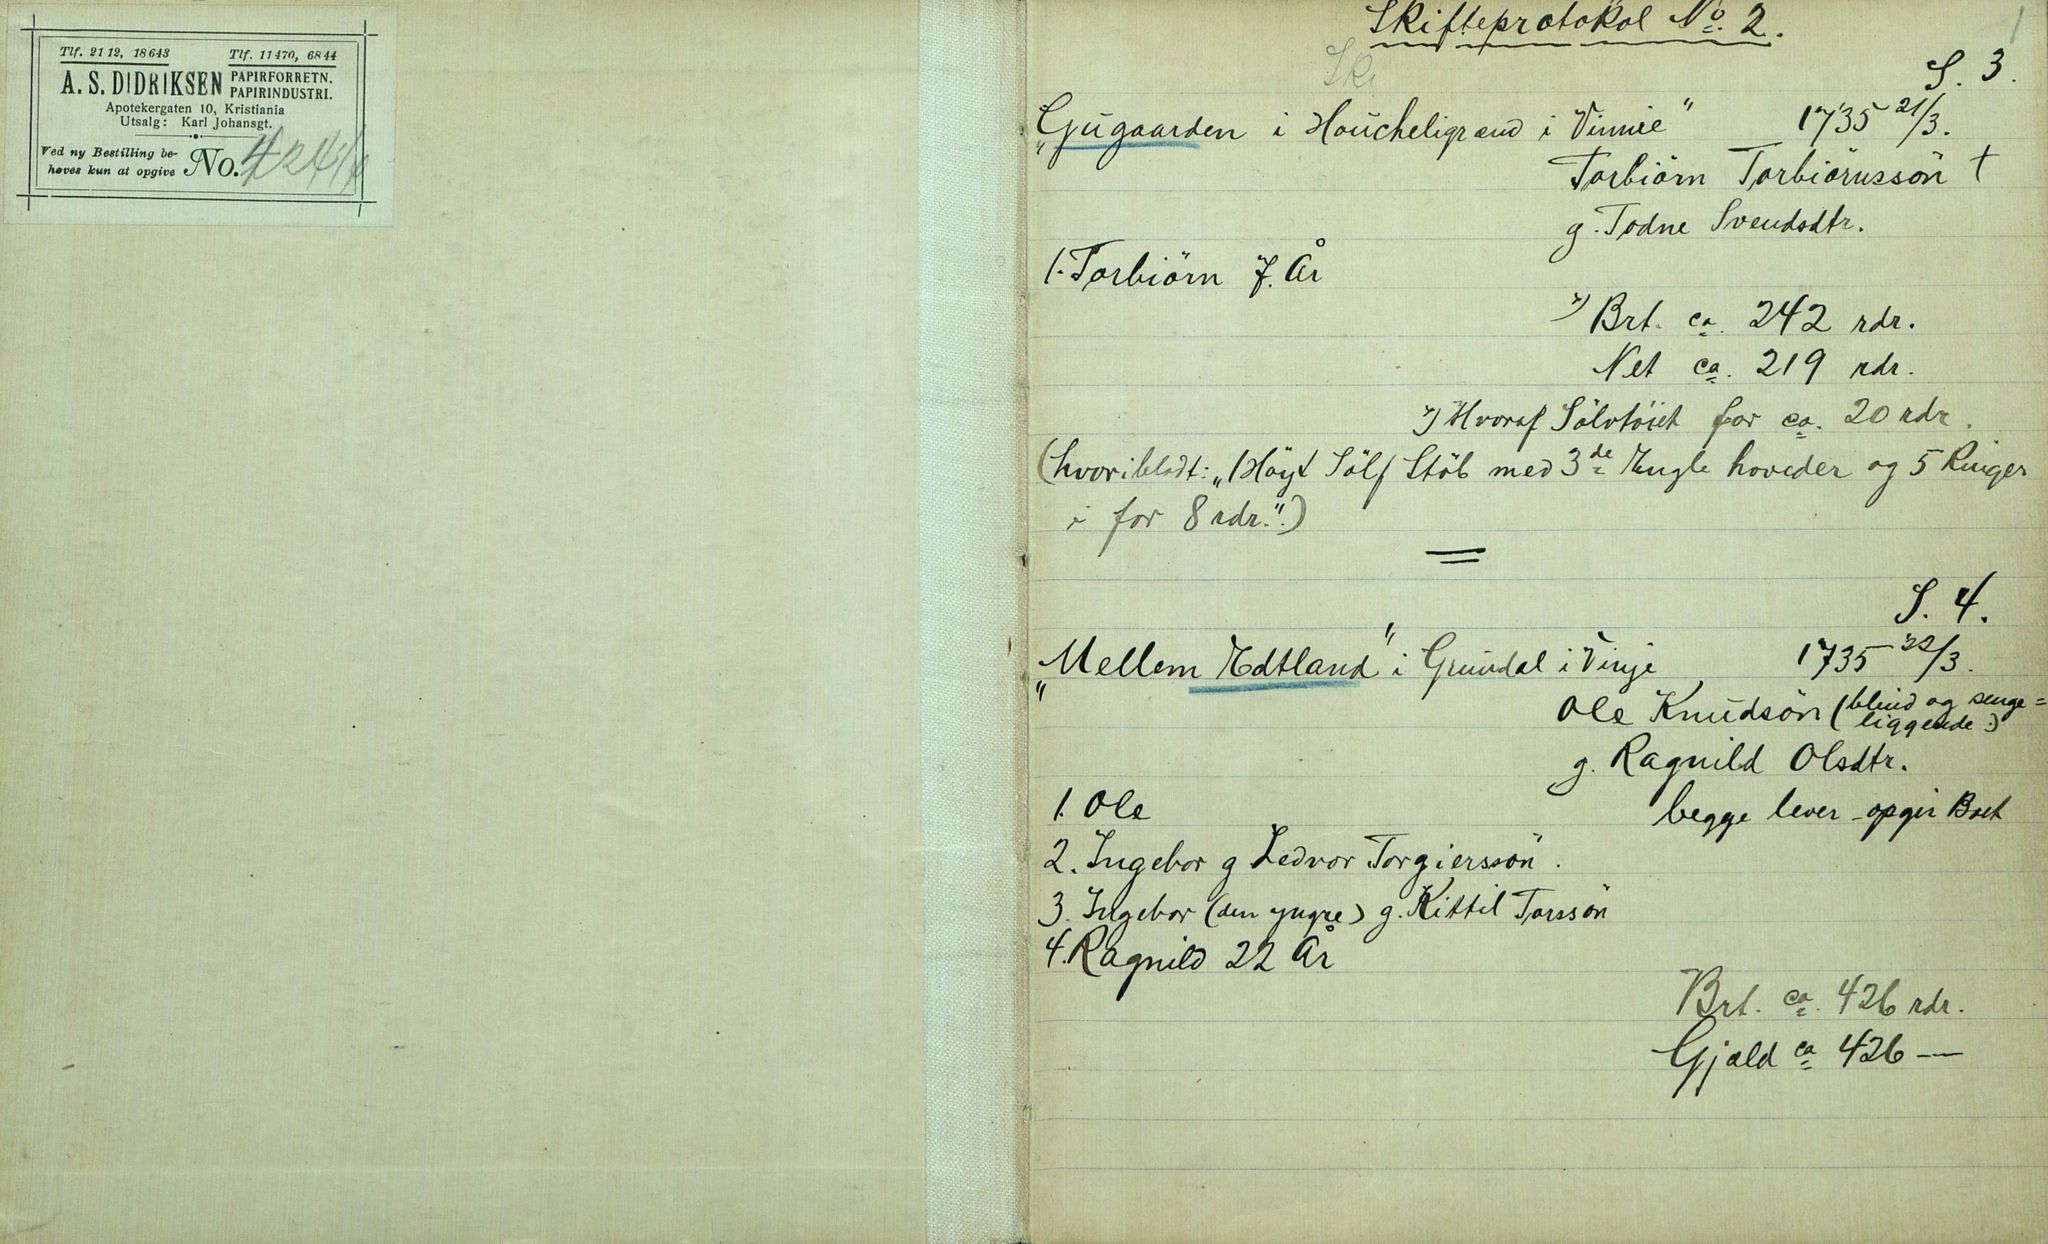 Tlf. 2112, 18643 Tlf. 11470, 6844
A. S. DIDRIKSEN PAPIRFORRETN.
PAPIRINDUSTRI.
Apotekergaten 10, Kristiania
Utsalg: Karl Johansgt.
Ved ny Bestilling be-
høves kun at opgive No.
1
Skifteprotokol No. 2.
Ski
S. 3.
"Gugaarden i Houcheligrænd i Vinnie" 1735 21/3.
Torbiörn Torbiörnssön †
g. Todne Svendsdtr.
1. Torbiörn 7. År
x) Brt. ca. 242 rdr.
Net ca. 219 rdr.
x) Hvoraf Sölvtöiet for ca. 20 rdr.
(hvoribladt: "Höyt Sölf Stöb med 3de Engle hoveder og 5 Ringer
i for 8 rdr.".)
S. 4.
"Mellem Edtland" i Grundal i Vinje 1735 22/3.
Ole Knudsön (blind og senge=
liggende.)
g. Ragnild Olsdtr.
1. Ole begge lever - opgir Boet
2. Ingebor g Ledvor Torgierssön.
3. Ingebor (den yngre) g. Kittil Torssön
4. Ragnild 22 År
Brt. ca. 426 rdr.
Gjæld ca 426 —